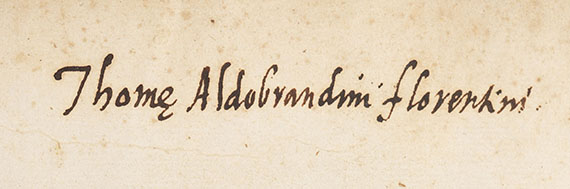 Thomę Aldobrandini florentini.